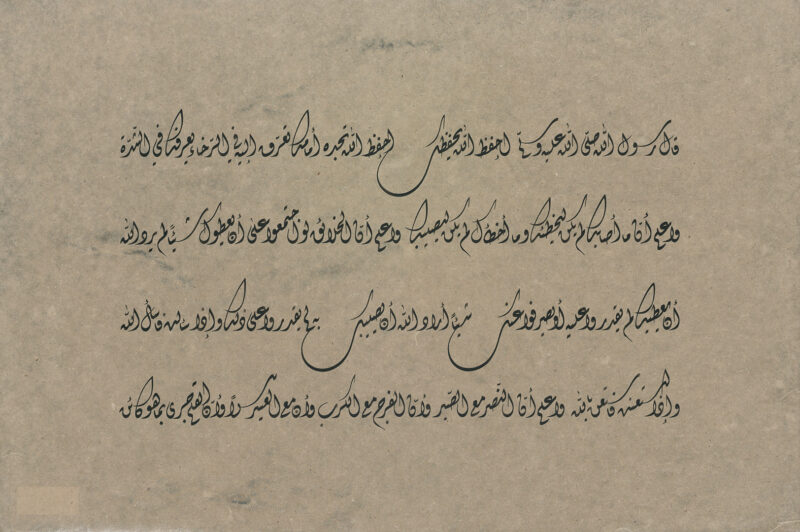 قال رسول الله صلى الله عليه وسلم احفظ الله يحفظك احفظ الله تجده أمامك تعرف إليه في الرخاء يعرفك في الشدة
واعلم أن ما أصابك لم يكن ليخطئك وما أخطأك لم يكن ليصيبك واعلم أن الخلائق لو اجتمعوا على أن يعطوك شيئا لم يرد الله
أن يعطيك لم يقدروا عليه أو يصرفوا عنك شيئا أراد الله أن يصيبك به لم يقدروا على ذلك وإذا سألت فاسأل الله
وإذا استعنت فاستعن بالله واعلم أن النصر مع الصبر وأن الفرج مع الكرب وأن مع العسر يسرا وأن القلم جرى بما هو كائن